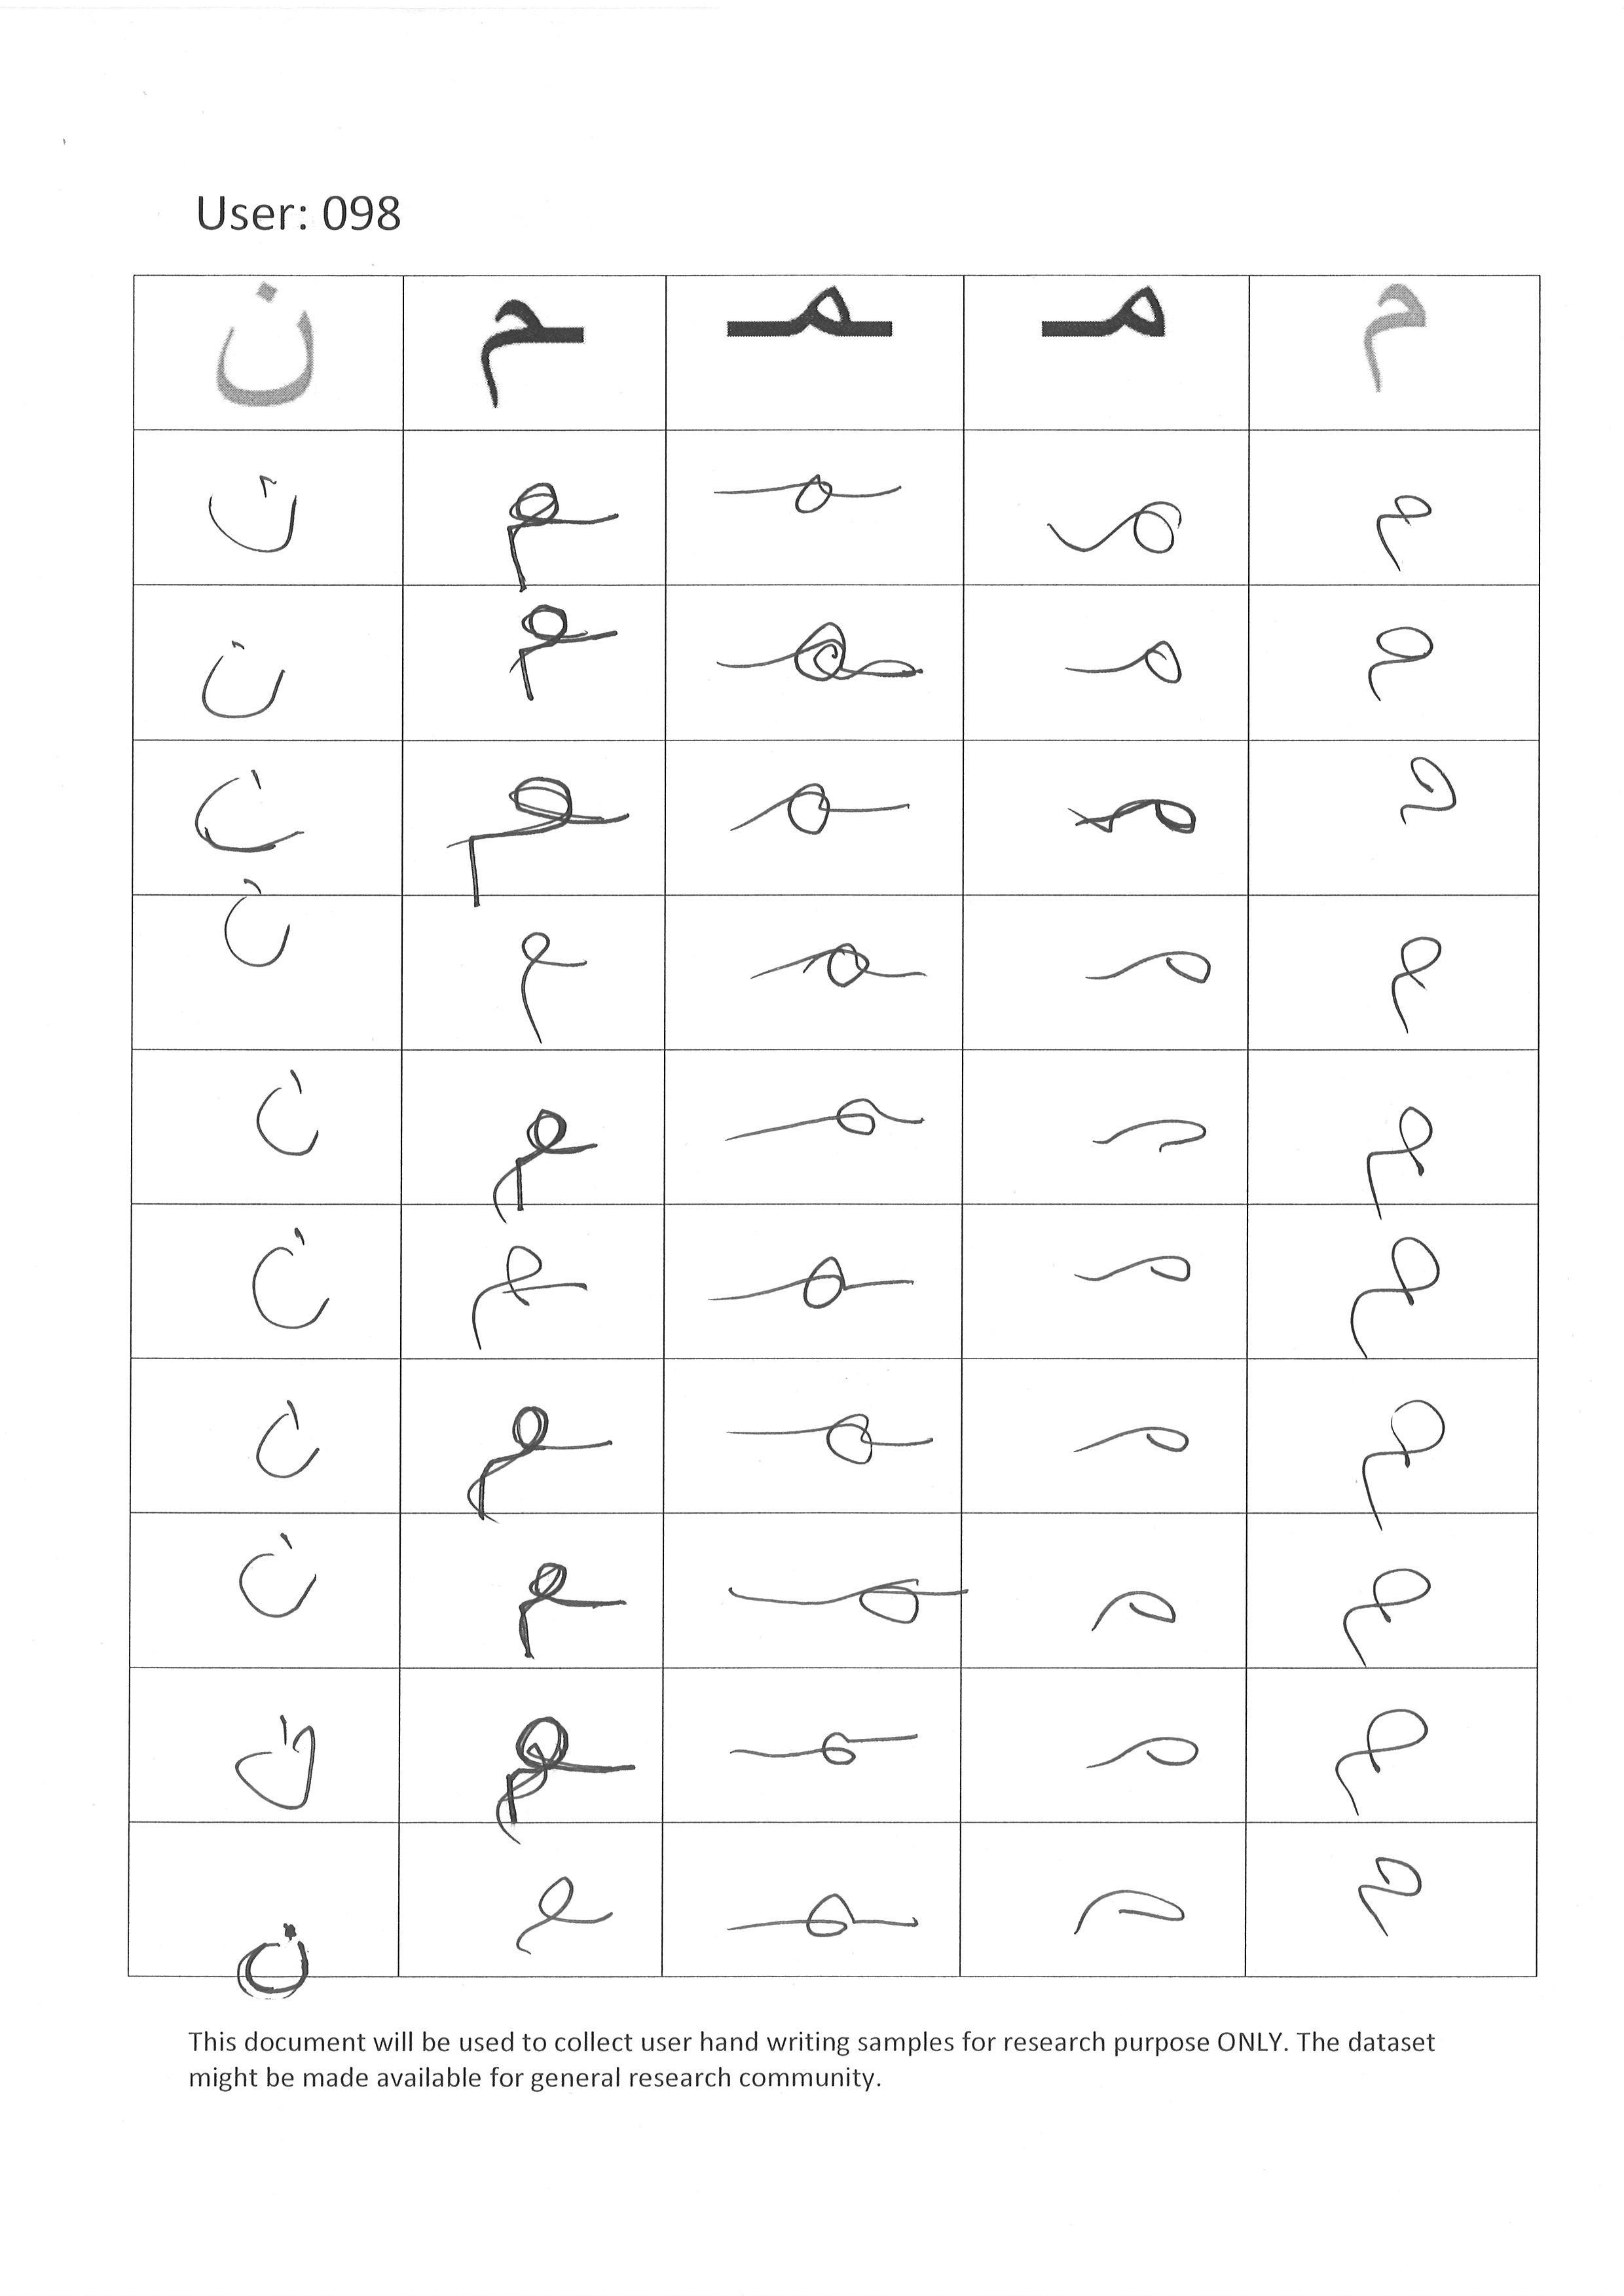 User: 098
م مـ ـمـ ـم ن
م مـ ـمـ ـم ن
م مـ ـمـ ـم ن
م مـ ـمـ ـم ن
م مـ ـمـ ـم ن
م مـ ـمـ ـم ن
م مـ ـمـ ـم ن
م مـ ـمـ ـم ن
م مـ ـمـ ـم ن
م مـ ـمـ ـم ن
م مـ ـمـ ـم ن
This document will be used to collect user hand writing samples for research purpose ONLY. The dataset
might be made available for general research community.